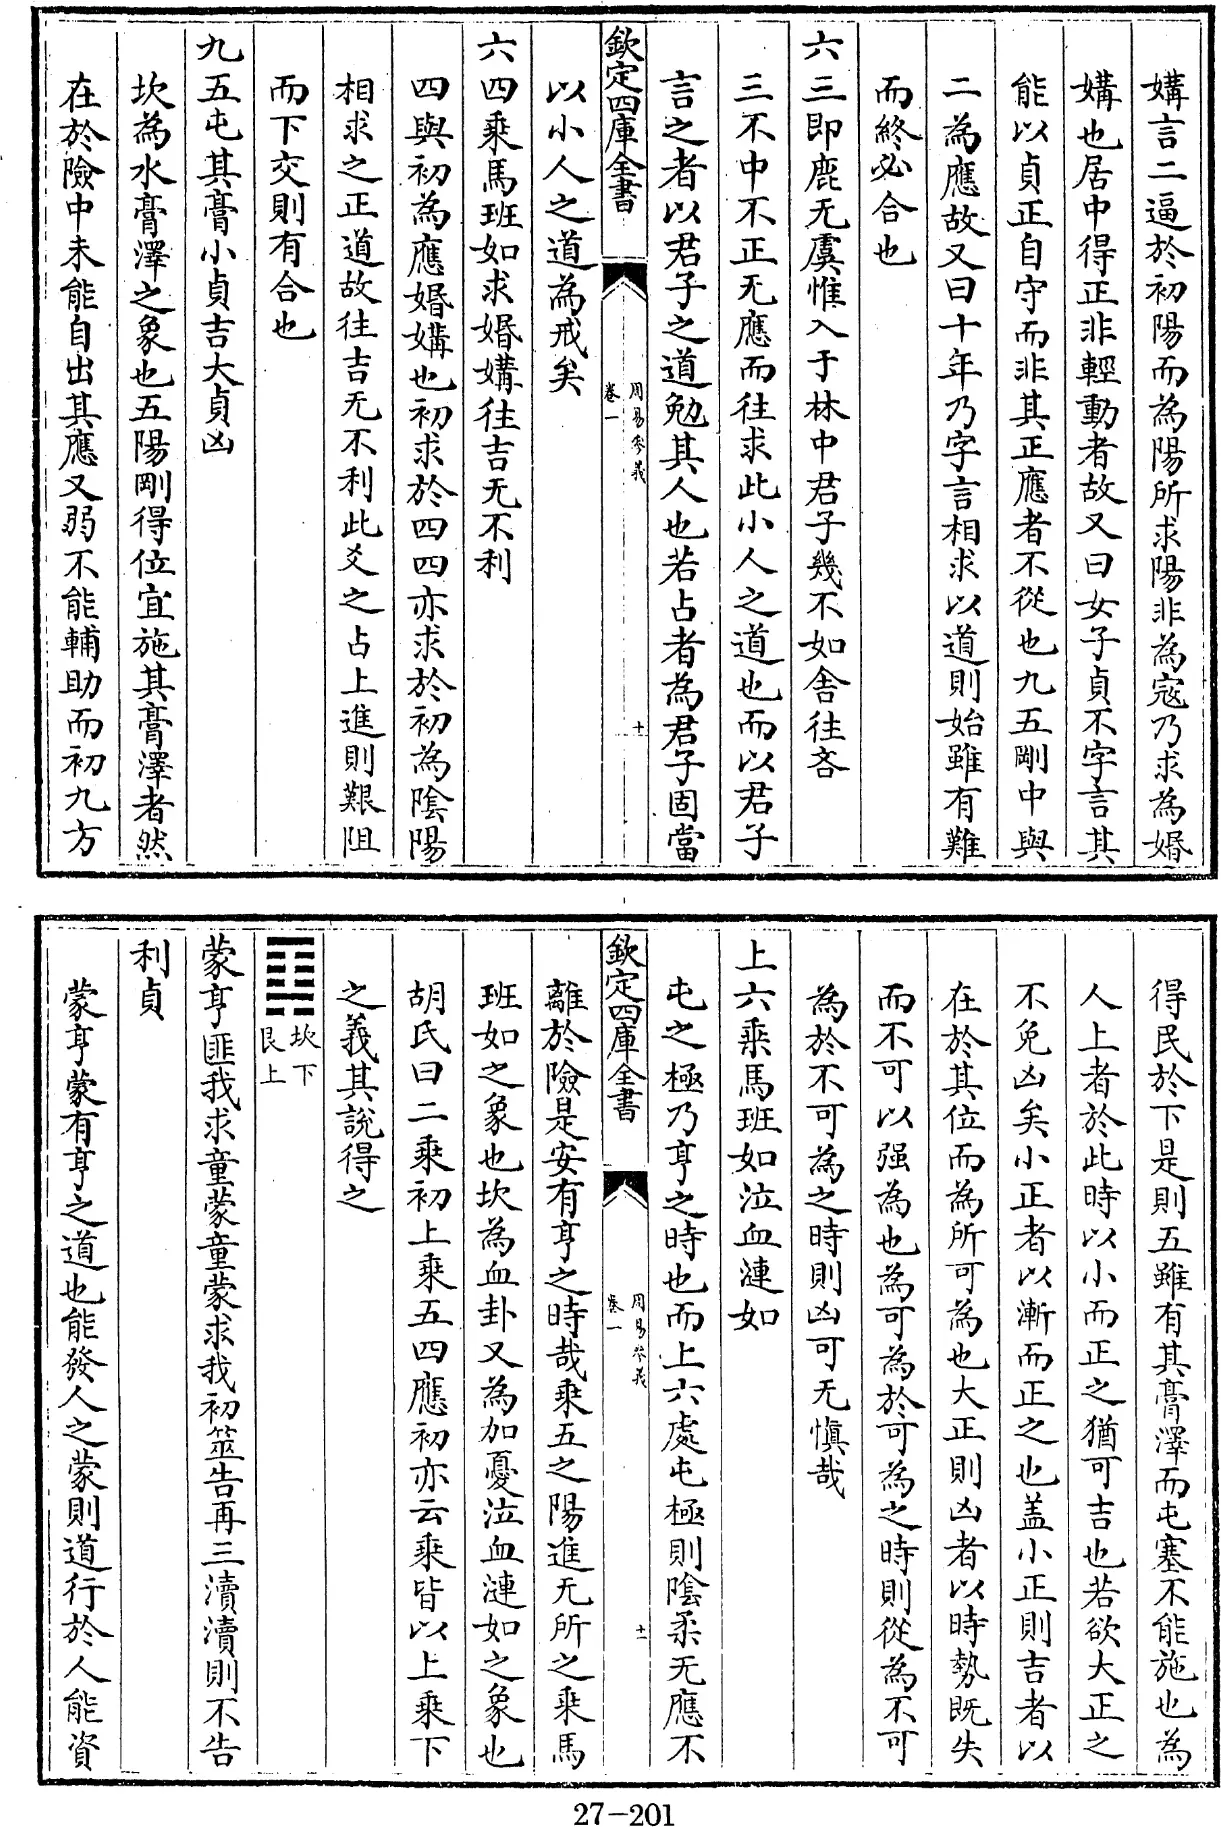 媾言二逼於初陽而為陽所求陽非為寇乃求為婚
媾也居中得正非輕動者故又曰女子貞不字言其
能以貞正自守而非其正應者不從也九五剛中與
二為應故又曰十年乃字言相求以道則始雖有難
而終必合也
六三即鹿无虞惟入于林中君子幾不如舍往吝
三不中不正无應而往求此小人之道也而以君子
言之者以君子之道勉其人也若占者為君子固當
欽定四庫全書
周易參義
卷一
十
以小人之道為戒矣
六四乘馬班如求婚媾往吉无不利
四與初為應婚媾也初求於四四亦求於初為陰陽
相求之正道故往吉无不利此爻之占上進則艱阻
而下交則有合也
九五屯其膏小貞吉大貞凶
坎為水膏澤之象也五陽剛得位宜施其膏澤者然
在於險中未能自出其應又弱不能輔助而初九方
得民於下是則五雖有其膏澤而屯塞不能施也為
人上者於此時以小而正之猶可吉也若欲大正之
不免凶矣小正者以漸而正之也盖小正則吉者以
在於其位而為所可為也大正則凶者以時勢既失
而不可以强為也為可為於可為之時則從為不可
為於不可為之時則凶可无慎哉
上六乘馬班如泣血漣如
屯之極乃亨之時也而上六處屯極則陰柔无應不
欽定四庫全書
周易參義
卷一
十一
離於險是安有亨之時哉乘五之陽進无所之乘馬
班如之象也坎為血卦又為加憂泣血漣如之象也
胡氏曰二乘初上乘五四應初亦云乘皆以上乘下
之義其說得之
坎下
艮上
蒙亨匪我求童蒙童蒙求我初筮告再三瀆瀆則不告
利貞
蒙亨蒙有亨之道也能發人之蒙則道行於人能資
27-201